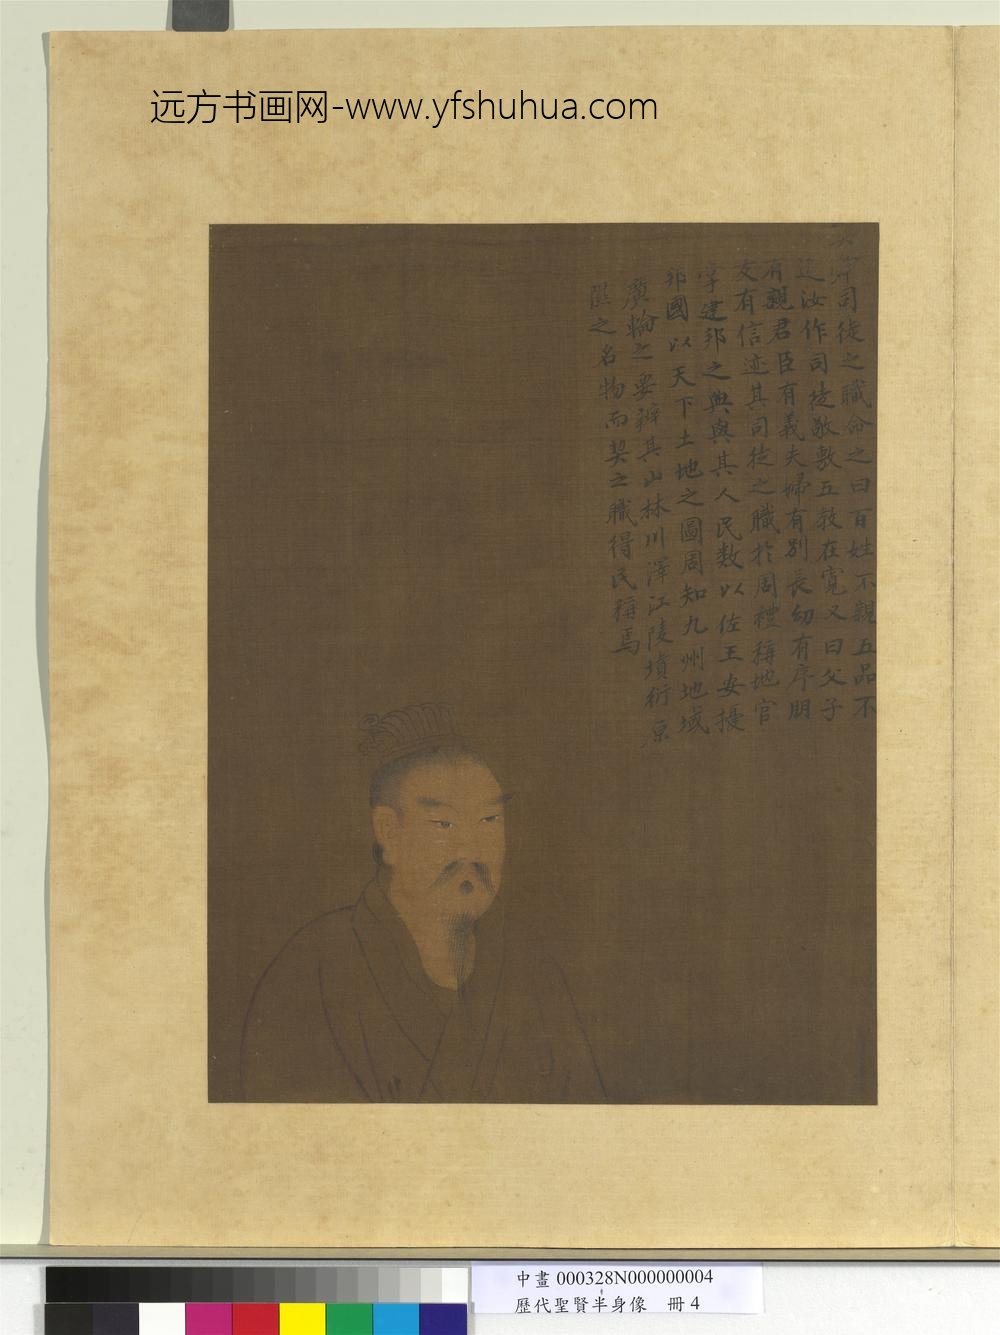 远方书画网-www.yfshuhua.com
司徒之職命之曰百姓不親五品不
汝作司徒敬敷五教在寬又曰父子
有親君臣有義夫婦有別長幼有序朋
友有信迹其司徒之職於周禮稱地官
建邦之與其人民数以佐王安擾
邦國以天下土地之圖周知九州地域
廣輪之要辨其山林川澤江陵墳衍原
隰之名物而契之職得民稱焉
中畫 000328N000000004
歷代聖賢半身像 冊 4